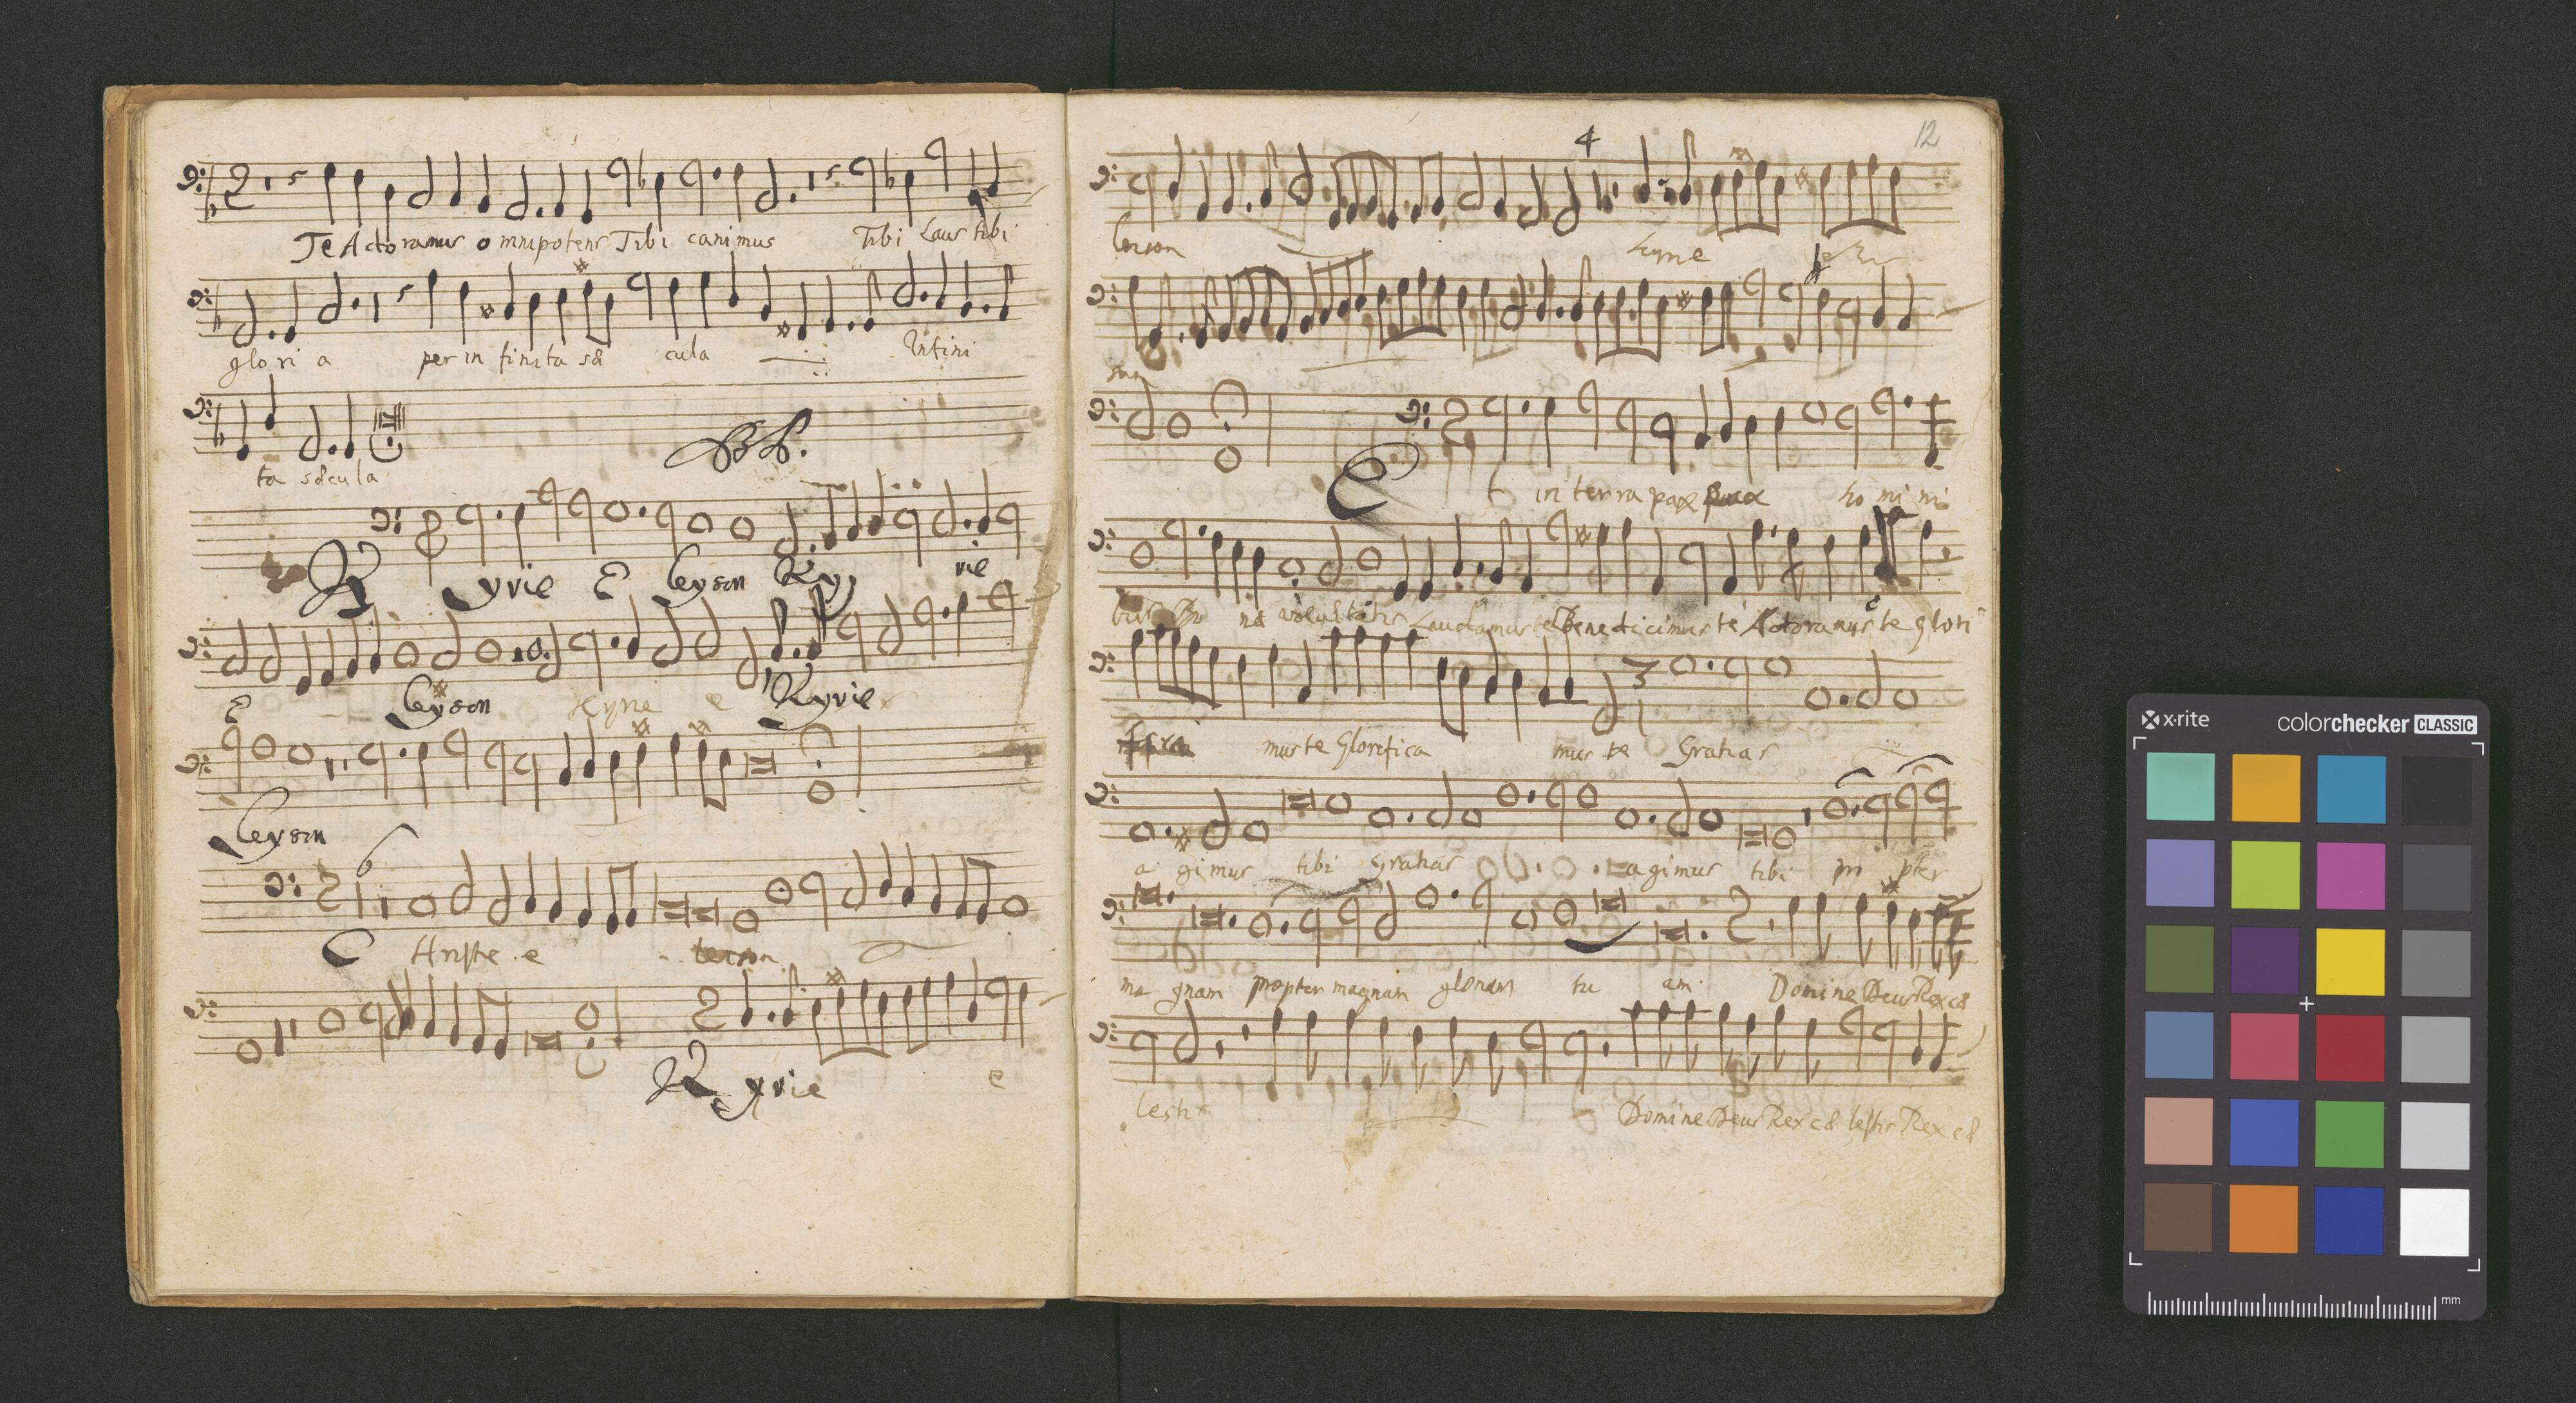 Te Adoramus omnipotens Tibi canimus Tibi Laus tibi
glo ri a per in finita sæ cula Infini
ta sæcula
Kyrie E leyson Ky rie
E leyson Kyrie e Kyrie
leyson
6
CHriste e leison
Kyrie e
12
4
leison Kyrie
Et in terra pax ho mi ni
bus næ voluntatis Laudamus te Benedicimus te Adoramus te glori
mus te Glorifica mus te Gratias
3
1
a gimus tibi Gratias agimus tibi pro pter
ma gnam propter magnam gloriam tu am Domine Deus Rex cæ
lestis Domine Deus Rex cæ lestis Rex cæ
x-rite
colorchecker CLASSIC
mm